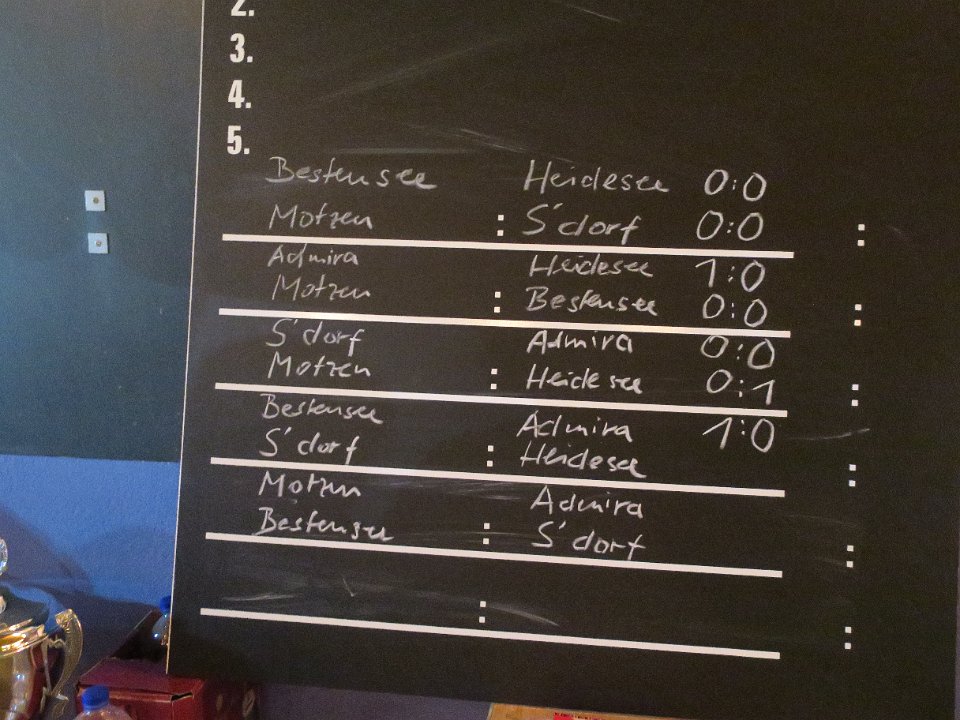 2.
3.
4.
5.
Bestensee Heidesee 0:0
Motzen : S'dorf 0:0 :
Admira Heidesee 1:0
Motzen : Bestensee 0:0 :
S'dorf Admira 0:0
Motzen : Heidesee 0:1 :
Bestensee Admira 1:0
S'dorf : Heidesee :
Motzen Admira
Bestensee : S'dorf :
: :